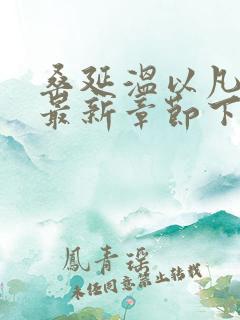 桑延温以凡
最新章節下
鳳青謠
未经同意禁止转载